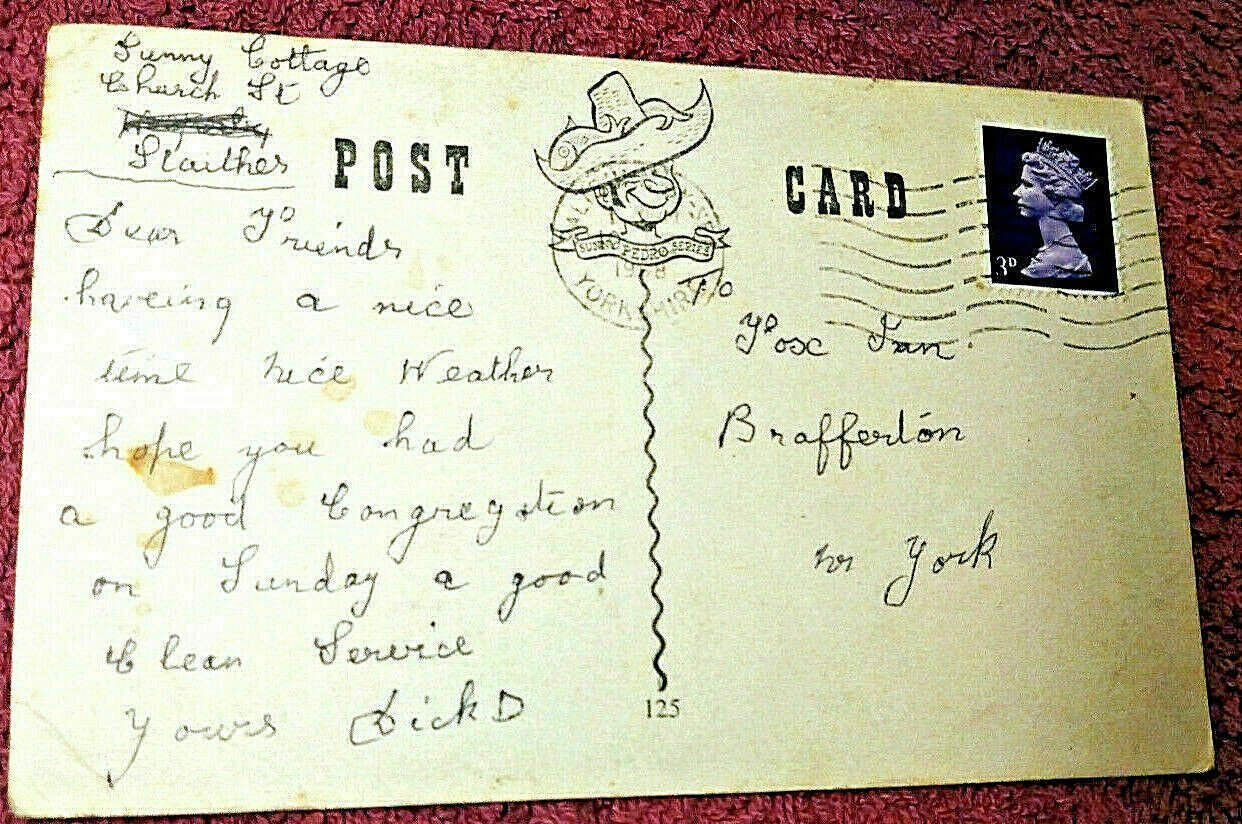 Sunny Cottage
Church St
Staithes
POST CARD
SUNNY PEDRO SERIES
YORKSHIRE
3D
Dear Friends
haveing a nice
time nice Weather
hope you had
a good Congregation
on Sunday a good
Clean Service
Yours Dick D
To
Fox Inn.
Brafferton
nr York
125